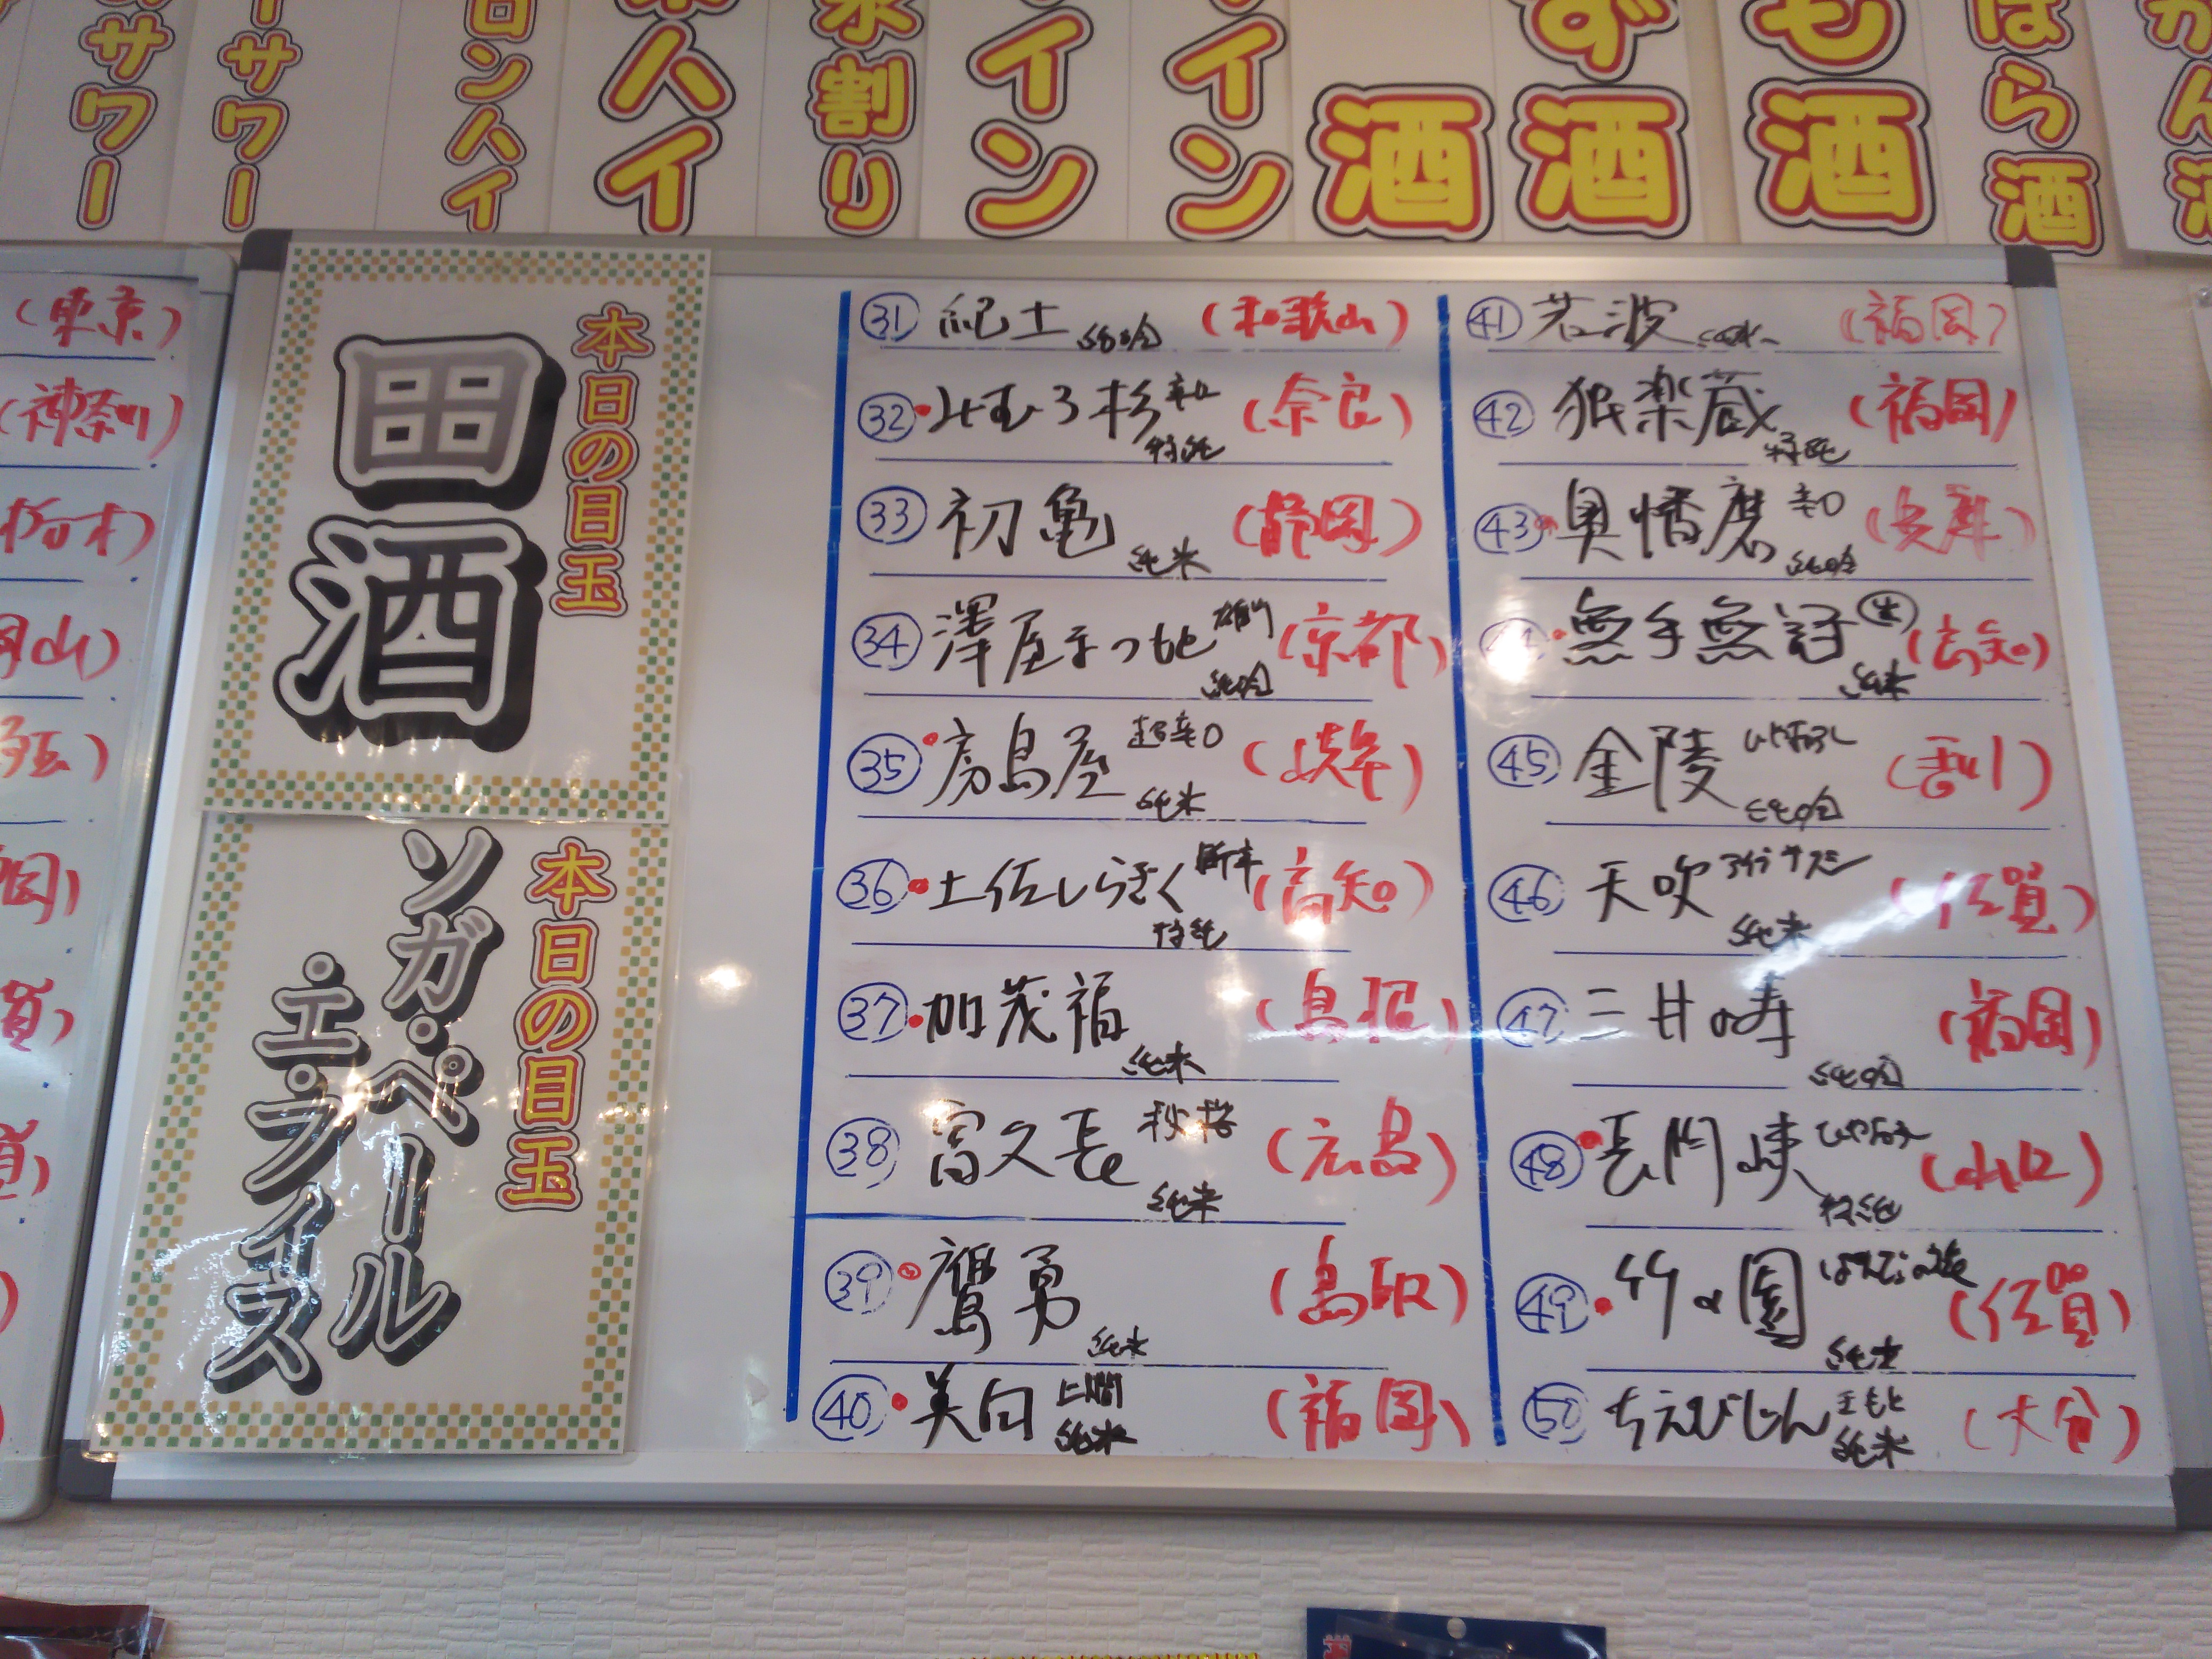 サワー
サワー
ロンハイ
ハイ
水割り
イン
イン
酒
ず酒
も酒
ばら酒
(東京)
(神奈川)
本日の目玉
田酒
本日の目玉
ソガ・ペール
エ・フィス
㉛ 紀土 純吟 (和歌山)
㉜ みむろ杉 辛口 特純 (奈良)
㉝ 初亀 純米 (静岡)
㉞ 澤屋まつもと 雄町 純吟 (京都)
㉟ 房島屋 超辛口 純米 (岐阜)
㊱ 土佐しらぎく 特純 (高知)
㊲ 加茂福 純米 (島根)
㊳ 富久長 秋桜 純米 (広島)
㊴ 鷹勇 純米 (鳥取)
㊵ 美向 純米 (福岡)
㊶ 若波 (福岡)
㊷ 独楽蔵 特純 (福岡)
㊸ 奥播磨 辛口 純吟 (兵庫)
㊹ 無手無冠 生 純米 (高知)
㊺ 金陵 ひやおろし 純吟 (香川)
㊻ 天吹 純米 (佐賀)
㊼ 三井の寿 純吟 (福岡)
㊽ 長門峡 ひやおろし 特純 (山口)
㊾ 竹の園 純米 (佐賀)
㊿ ちえびじん 生もと 純米 (大分)